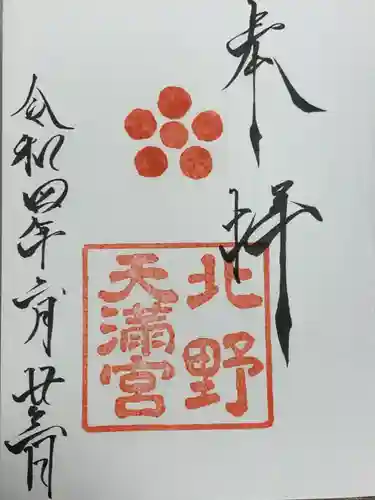 奉拝
北野
天満宮
令和四年六月廿三日